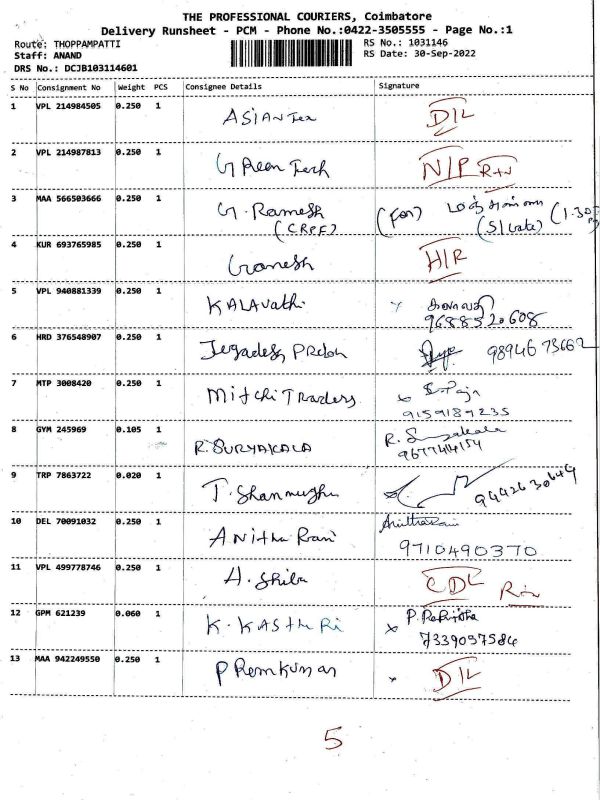 THE PROFESSIONAL COURIERS, Coimbatore
Delivery Runsheet - PCM - Phone No.:0422-3505555 - Page No.:1
Route: THOPPAMPATTI RS No.: 1031146
Staff: ANAND RS Date: 30-Sep-2022
DRS No.: DCJB103114601
S No Consignment No Weight PCS Consignee Details Signature
1 VPL 214984505 0.250 1 ASIAN Tex D/L
2 VPL 214987813 0.250 1 Green Tech N/P
3 MAA 566503666 0.250 1 G. Ramesh (For)
(CRPF) (S/Gate)
4 KUR 693765985 0.250 1 Ganesh H/R
5 VPL 940881339 0.250 1 KALAvathi x கலாவதி
9688520608
6 HRD 376548907 0.250 1 9894673662
7 MTP 3008420 0.250 1 Mitchi Traders x
9159189235
8 GYM 245969 0.105 1 R. SURYAKALA R.
9677414154
9 TRP 7863722 0.020 1 T. Shanmugha 9442630649
10 DEL 70091032 0.250 1 Anitha Rani
9710490370
11 VPL 499778746 0.250 1 A. Shiba CDL
12 GPM 621239 0.060 1 K. KASthuRi x P.
7339097584
13 MAA 942249550 0.250 1 PRemkumar x D/L
5